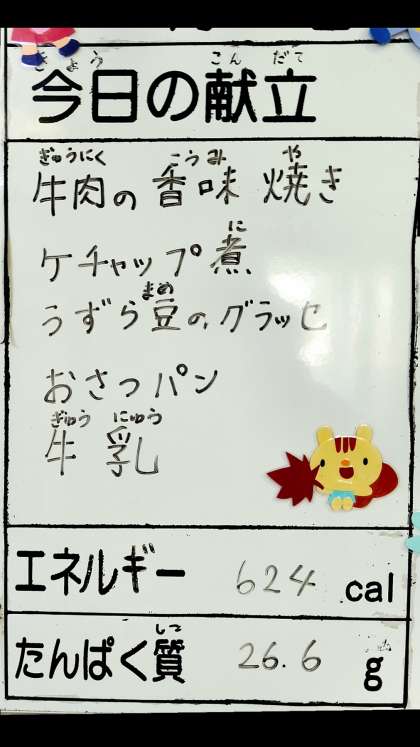 きょう こんだて
今日の献立
ぎゅうにく こうみ や
牛肉の香味焼き
に
ケチャップ煮
まめ
うずら豆のグラッセ
おさつパン
ぎゅう にゅう
牛乳
エネルギー 624 cal
しつ
たんぱく質 26.6 g